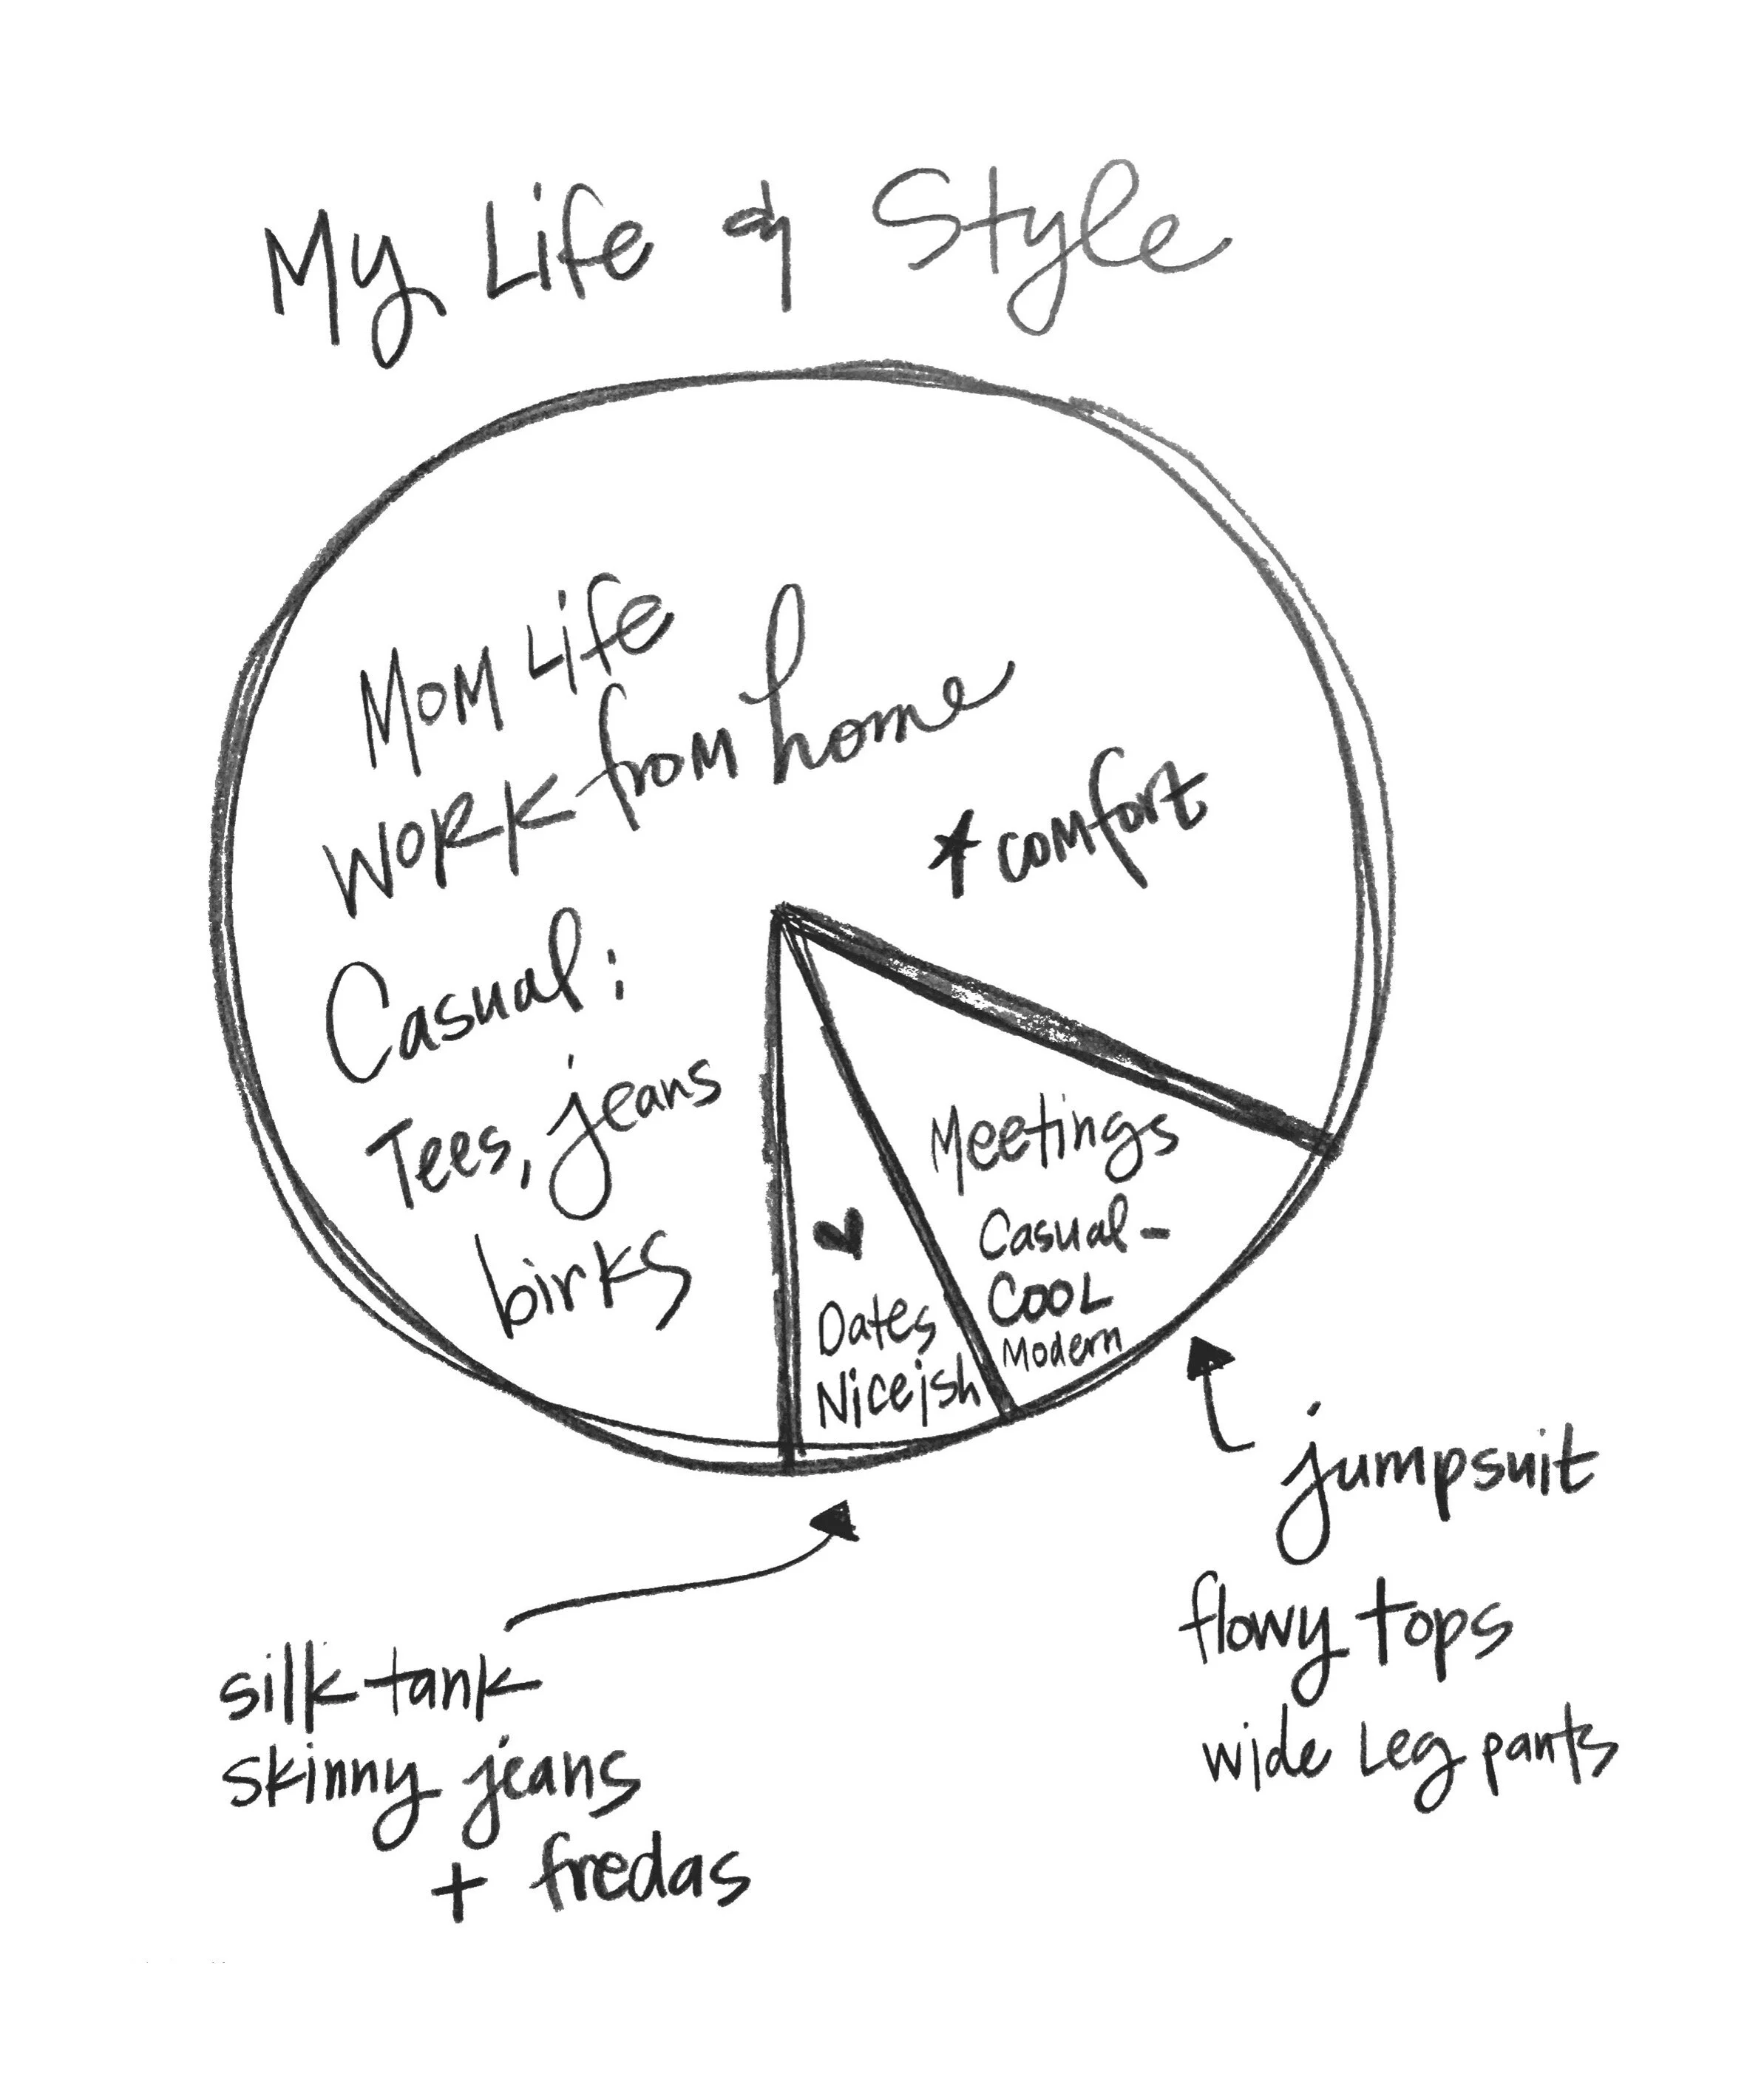 My Life & Style
Mom Life
work from home
* comfort
Casual:
Tees, jeans
birks
Meetings
Casual-
Cool
Modern
♥
Dates
Niceish
jumpsuit
flowy tops
wide Leg pants
silk tank
skinny jeans
+ fredas